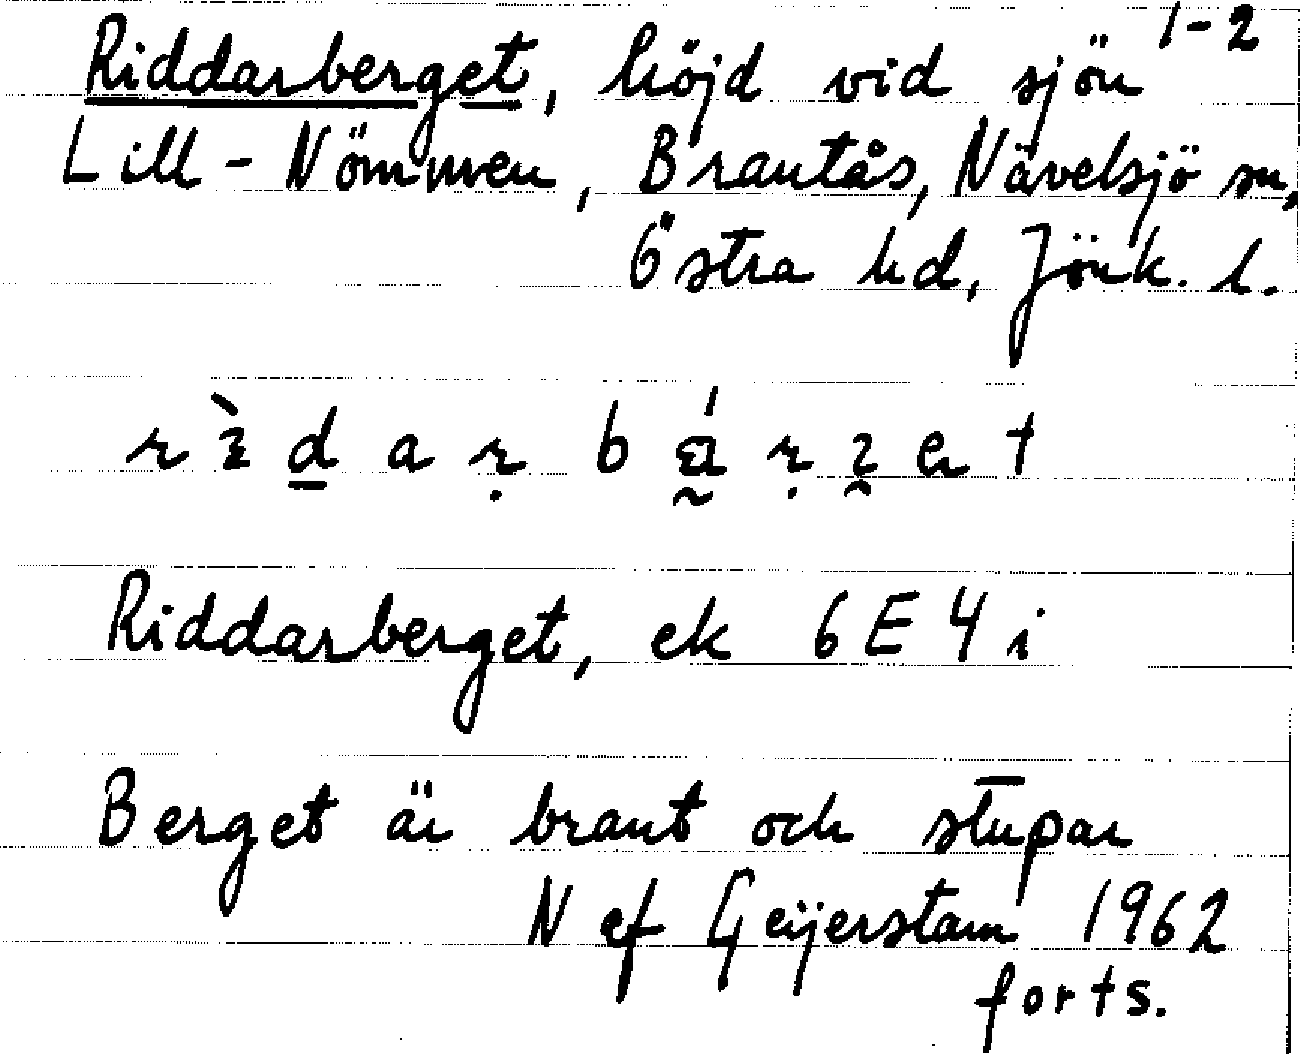 1-2
Riddarberget, höjd vid sjön
Lill-Nömmen, Brantås, Nävelsjö sn,
Östra hd, Jönk. l.
Riddarberget, ek 6E4i
Berget är brant och stupar
N af Geijerstam 1962
forts.